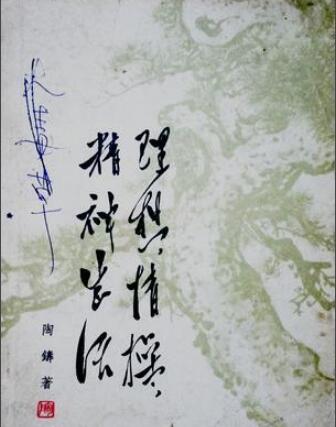 理想，情操，
精神生活
陶鑄著